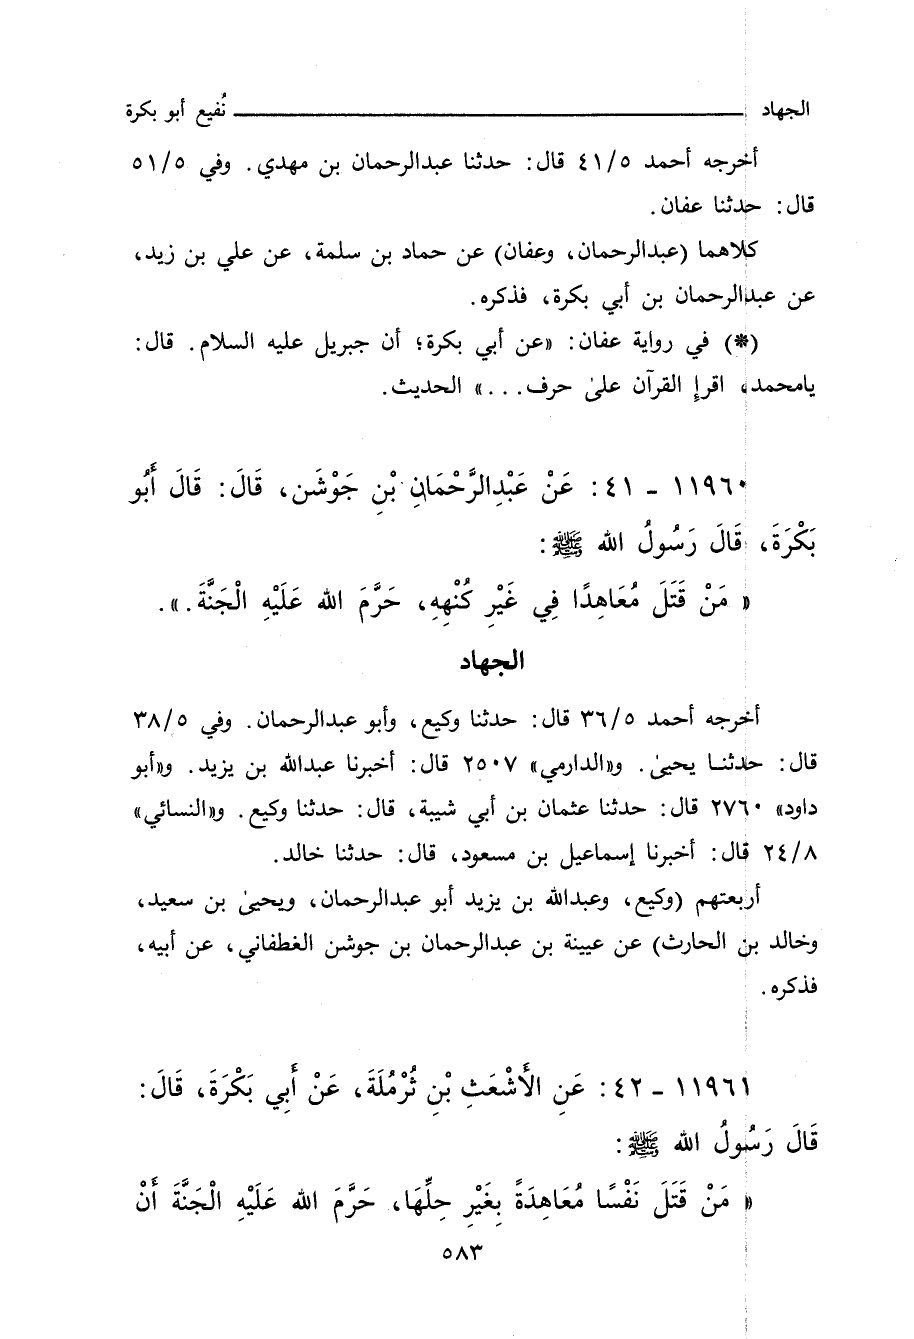 الجهاد ــــــــــــــــ نُفيع أبو بكرة
أخرجه أحمد ٤١/٥ قال: حدثنا عبدالرحمان بن مهدي. وفي ٥١/٥
قال: حدثنا عفان.
كلاهما (عبدالرحمان، وعفان) عن حماد بن سلمة، عن علي بن زيد،
عن عبدالرحمان بن أبي بكرة، فذكره.
(*) في رواية عفان: «عن أبي بكرة؛ أن جبريل عليه السلام. قال:
يامحمد، اقرإ القرآن علىٰ حرف...» الحديث.
١١٩٦٠ - ٤١: عَنْ عَبْدِالرَّحْمَانِ بْنِ جَوْشَن، قَالَ: قَالَ أَبُو
بَكْرَةَ، قَالَ رَسُولُ الله ﷺ:
« مَنْ قَتَلَ مُعَاهِدًا فِي غَيْرِ كُنْهِهِ، حَرَّمَ الله عَلَيْهِ الْجَنَّةَ.».
الجهاد
أخرجه أحمد ٣٦/٥ قال: حدثنا وكيع، وأبو عبدالرحمان. وفي ٣٨/٥
قال: حدثنا يحيىٰ. و«الدارمي» ٢٥٠٧ قال: أخبرنا عبدالله بن يزيد. و«أبو
داود» ٢٧٦٠ قال: حدثنا عثمان بن أبي شيبة، قال: حدثنا وكيع. و«النسائي»
٢٤/٨ قال: أخبرنا إسماعيل بن مسعود، قال: حدثنا خالد.
أربعتهم (وكيع، وعبدالله بن يزيد أبو عبدالرحمان، ويحيىٰ بن سعيد،
وخالد بن الحارث) عن عيينة بن عبدالرحمان بن جوشن الغطفاني، عن أبيه،
فذكره.
١١٩٦١ - ٤٢: عَنِ الأَشْعَثِ بْنِ ثُرْمُلَةَ، عَنْ أَبِي بَكْرَةَ، قَالَ:
قَالَ رَسُولُ الله ﷺ:
« مَنْ قَتَلَ نَفْسًا مُعَاهِدَةً بِغَيْرِ حِلِّهَا، حَرَّمَ الله عَلَيْهِ الْجَنَّةَ أَنْ
٥٨٣